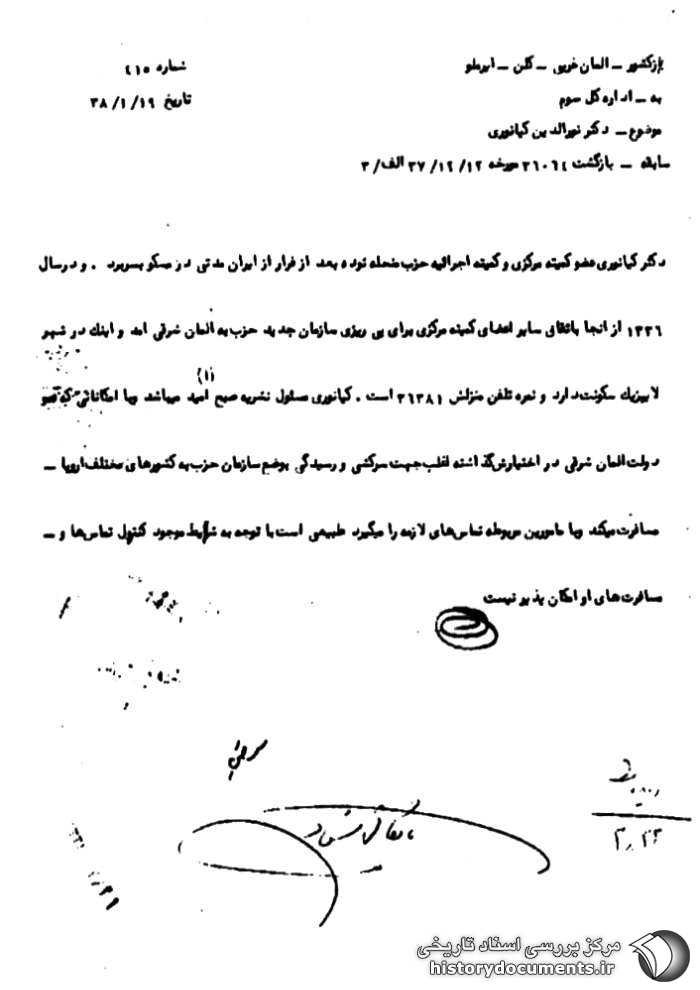 از کشور ــ المان غربی ــ کلن ــ
شماره ٤١٥
به ــ اداره کل سوم
تاریخ ٣٨/١/١٩
موضوع ــ دکتر نورالدین کیانوری
سابقه ــ بازگشت ٣٦٠٦٤ مورخه ٣٧/١٢/١٢ الف/٣
دکتر کیانوری عضو کمیته مرکزی و کمیته اجرائیه حزب منحله توده بعد از فرار از ایران مدتی در مسکو بسربرد . و در سال
١٣٣٦ از انجا باتفاق سایر اعضای کمیته مرکزی برای پی ریزی سازمان جدید حزب به المان شرقی امد و اینك در شهر
لایپزیك سکونت دارد و نمره تلفن منزلش ٣٦٣٨١ است . کیانوری مسئول نشریه صبح امید میباشد وبا امکاناتی که
(١)
دولت المان شرقی در اختیارش گذاشته اغلب جهت سرکشی و رسیدگی بوضع سازمان حزب به کشورهای مختلف اروپا ــ
مسافرت میکند وبا مامورین مربوطه تماس‌های لازمه را میگیرد طبیعی است با توجه به شرایط موجود کنترل تماس‌ها و ــ
مسافرت‌های او امکان پذیر نیست
بایگانی شود
مرکز بررسی اسناد تاریخی
historydocuments.ir